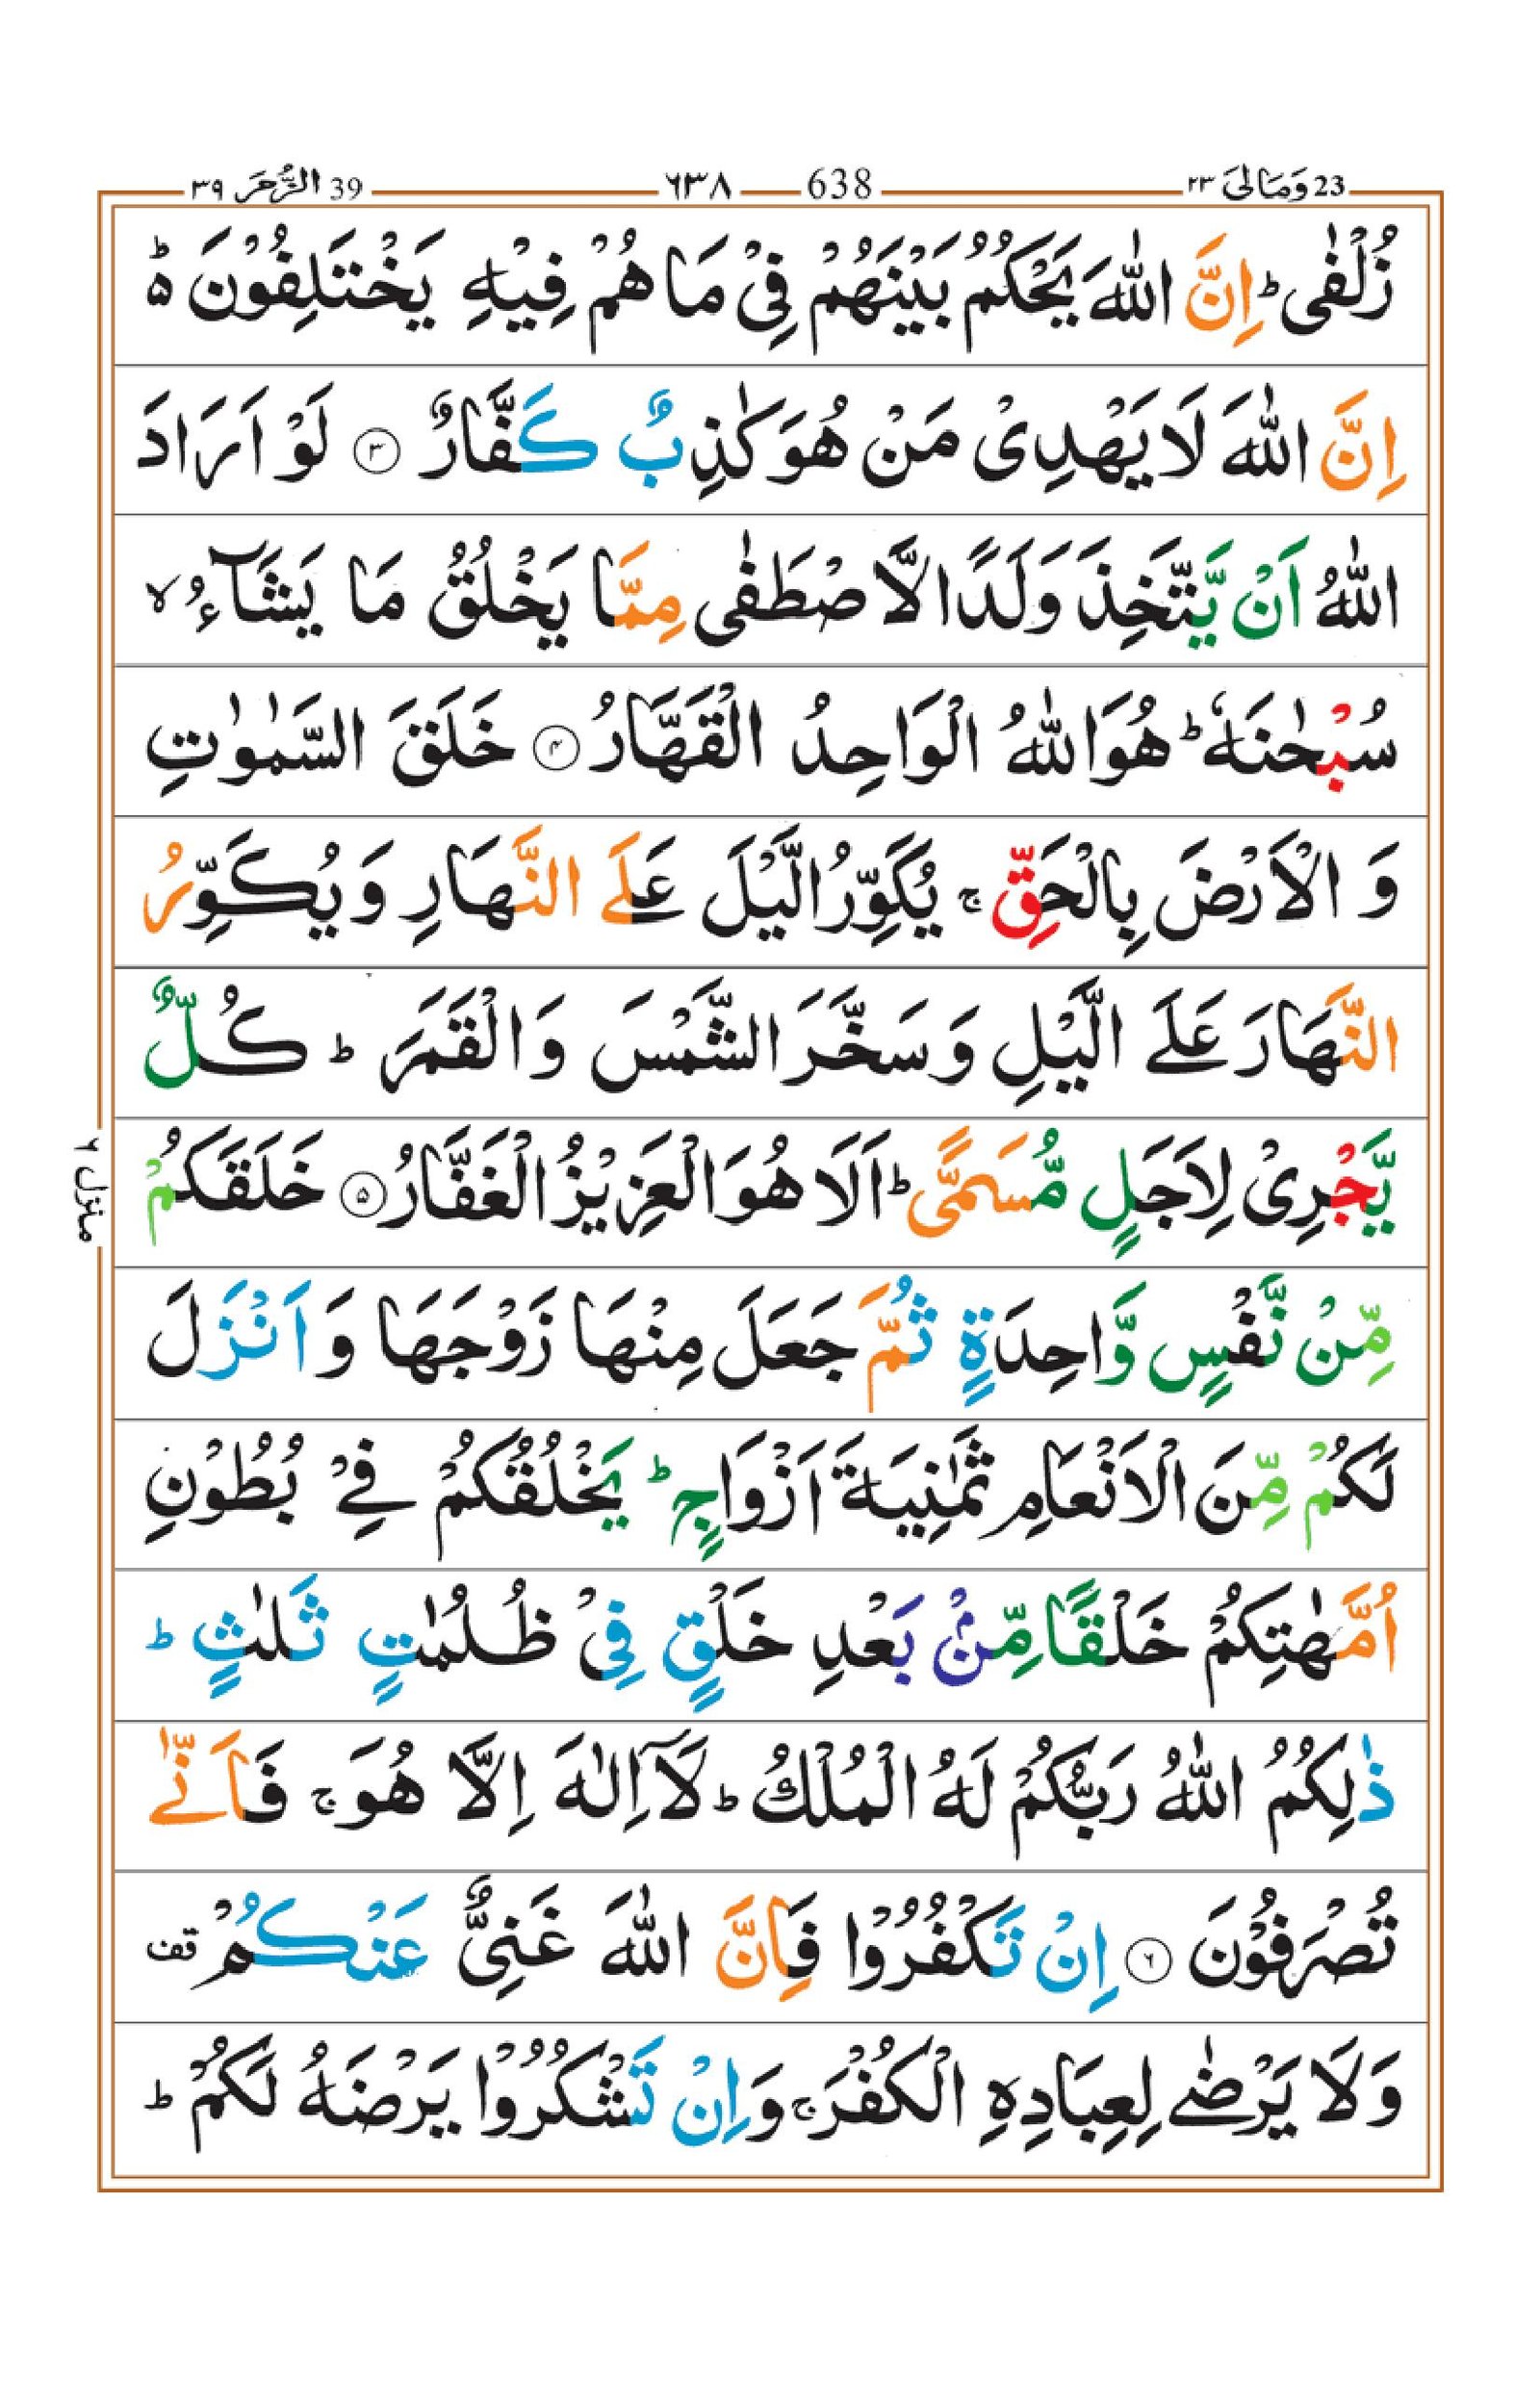 23 وَمَالِیَ ٢٣ 638 ٦٣٨ 39 الزُّمَر ٣٩
زُلْفٰی ؕ اِنَّ اللّٰهَ یَحْكُمُ بَیْنَهُمْ فِیْ مَا هُمْ فِیْهِ یَخْتَلِفُوْنَ ؕ۬
اِنَّ اللّٰهَ لَا یَهْدِیْ مَنْ هُوَ كٰذِبٌ كَفَّارٌ ﴿۳﴾ لَوْ اَرَادَ
اللّٰهُ اَنْ یَّتَّخِذَ وَلَدًا لَّاصْطَفٰی مِمَّا یَخْلُقُ مَا یَشَآءُ ۙ
سُبْحٰنَهٗ ؕ هُوَ اللّٰهُ الْوَاحِدُ الْقَهَّارُ ﴿۴﴾ خَلَقَ السَّمٰوٰتِ
وَ الْاَرْضَ بِالْحَقِّ ۚ یُكَوِّرُ الَّیْلَ عَلَی النَّهَارِ وَ یُكَوِّرُ
النَّهَارَ عَلَی الَّیْلِ وَ سَخَّرَ الشَّمْسَ وَ الْقَمَرَ ؕ كُلٌّ
یَّجْرِیْ لِاَجَلٍ مُّسَمًّی ؕ اَلَا هُوَ الْعَزِیْزُ الْغَفَّارُ ﴿۵﴾ خَلَقَكُمْ
مِّنْ نَّفْسٍ وَّاحِدَةٍ ثُمَّ جَعَلَ مِنْهَا زَوْجَهَا وَ اَنْزَلَ
لَكُمْ مِّنَ الْاَنْعَامِ ثَمٰنِیَةَ اَزْوَاجٍ ؕ یَخْلُقُكُمْ فِیْ بُطُوْنِ
اُمَّهٰتِكُمْ خَلْقًا مِّنْۢ بَعْدِ خَلْقٍ فِیْ ظُلُمٰتٍ ثَلٰثٍ ؕ
ذٰلِكُمُ اللّٰهُ رَبُّكُمْ لَهُ الْمُلْكُ ؕ لَاۤ اِلٰهَ اِلَّا هُوَ ۚ فَاَنّٰی
تُصْرَفُوْنَ ﴿۶﴾ اِنْ تَكْفُرُوْا فَاِنَّ اللّٰهَ غَنِیٌّ عَنْكُمْ قف
وَ لَا یَرْضٰی لِعِبَادِهِ الْكُفْرَ ۚ وَ اِنْ تَشْكُرُوْا یَرْضَهُ لَكُمْ ؕ
منزل ٦